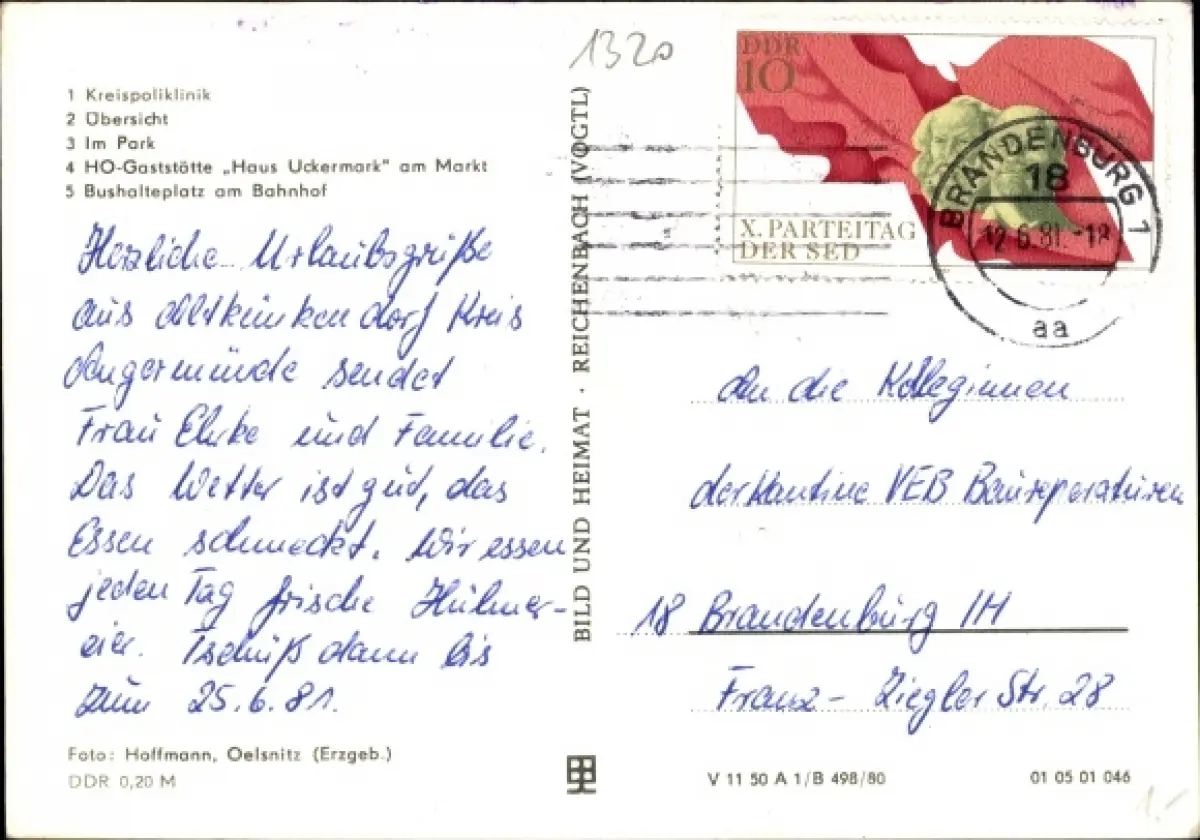 1 Kreispoliklinik
2 Übersicht
3 Im Park
4 HO-Gaststätte „Haus Uckermark" am Markt
5 Bushalteplatz am Bahnhof
Herzliche Urlaubsgrüße
aus Altkünkendorf Kreis
Angermünde sendet
Frau Ehrke und Familie.
Das Wetter ist gut, das
Essen schmeckt. Wir essen
jeden Tag frische Hühner-
eier. Tschüß dann bis
zum 25.6.81.
Foto: Hoffmann, Oelsnitz (Erzgeb.)
DDR 0,20 M
BILD UND HEIMAT · REICHENBACH (VOGTL)
1320
DDR
10
X. PARTEITAG
DER SED
BRANDENBURG 1
18
12.6.81.-18
aa
An die Kolleginnen
der Kantine VEB Baureparaturen
18 Brandenburg 1H
Franz-Ziegler Str. 28
V 11 50 A 1/B 498/80
01 05 01 046